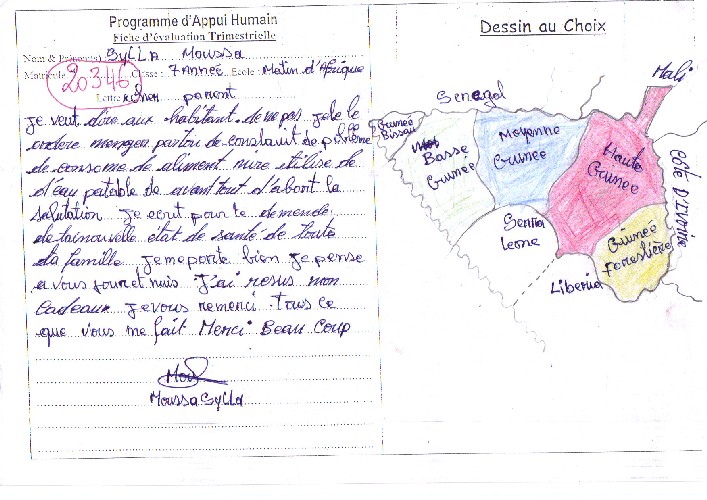 Programme d'Appui Humain
Fiche d'évaluation Trimestrielle
Nom & Prénom(s) Sylla Moussa
Matricule 20346 Classe : 7 Année Ecole : Matin d'Afrique
Lettre : cher parent
Je veut dire aux habitant de mon pays
ordere manger partou de constanit de problème
de consome de aliment nure utilise de
d'eau patable de avant tout d'abort la
salutation Je ecrit pour te demende
de tai nouvelle état de santé de toute
ta famille Je me porte bien Je pense
a vous jour et nuis J'ai resus mon
Cadeaux Je vous remenci Tous ce
que vous me fait Merci Beau Coup
Moussa Sylla
Dessin au Choix
Senegal
Mali
Guineé Bissau
Basse Guineé
Moyenne Guinee
Haute Guinee
cote D'Ivoire
Serria leone
Guineé forestière
Liberia